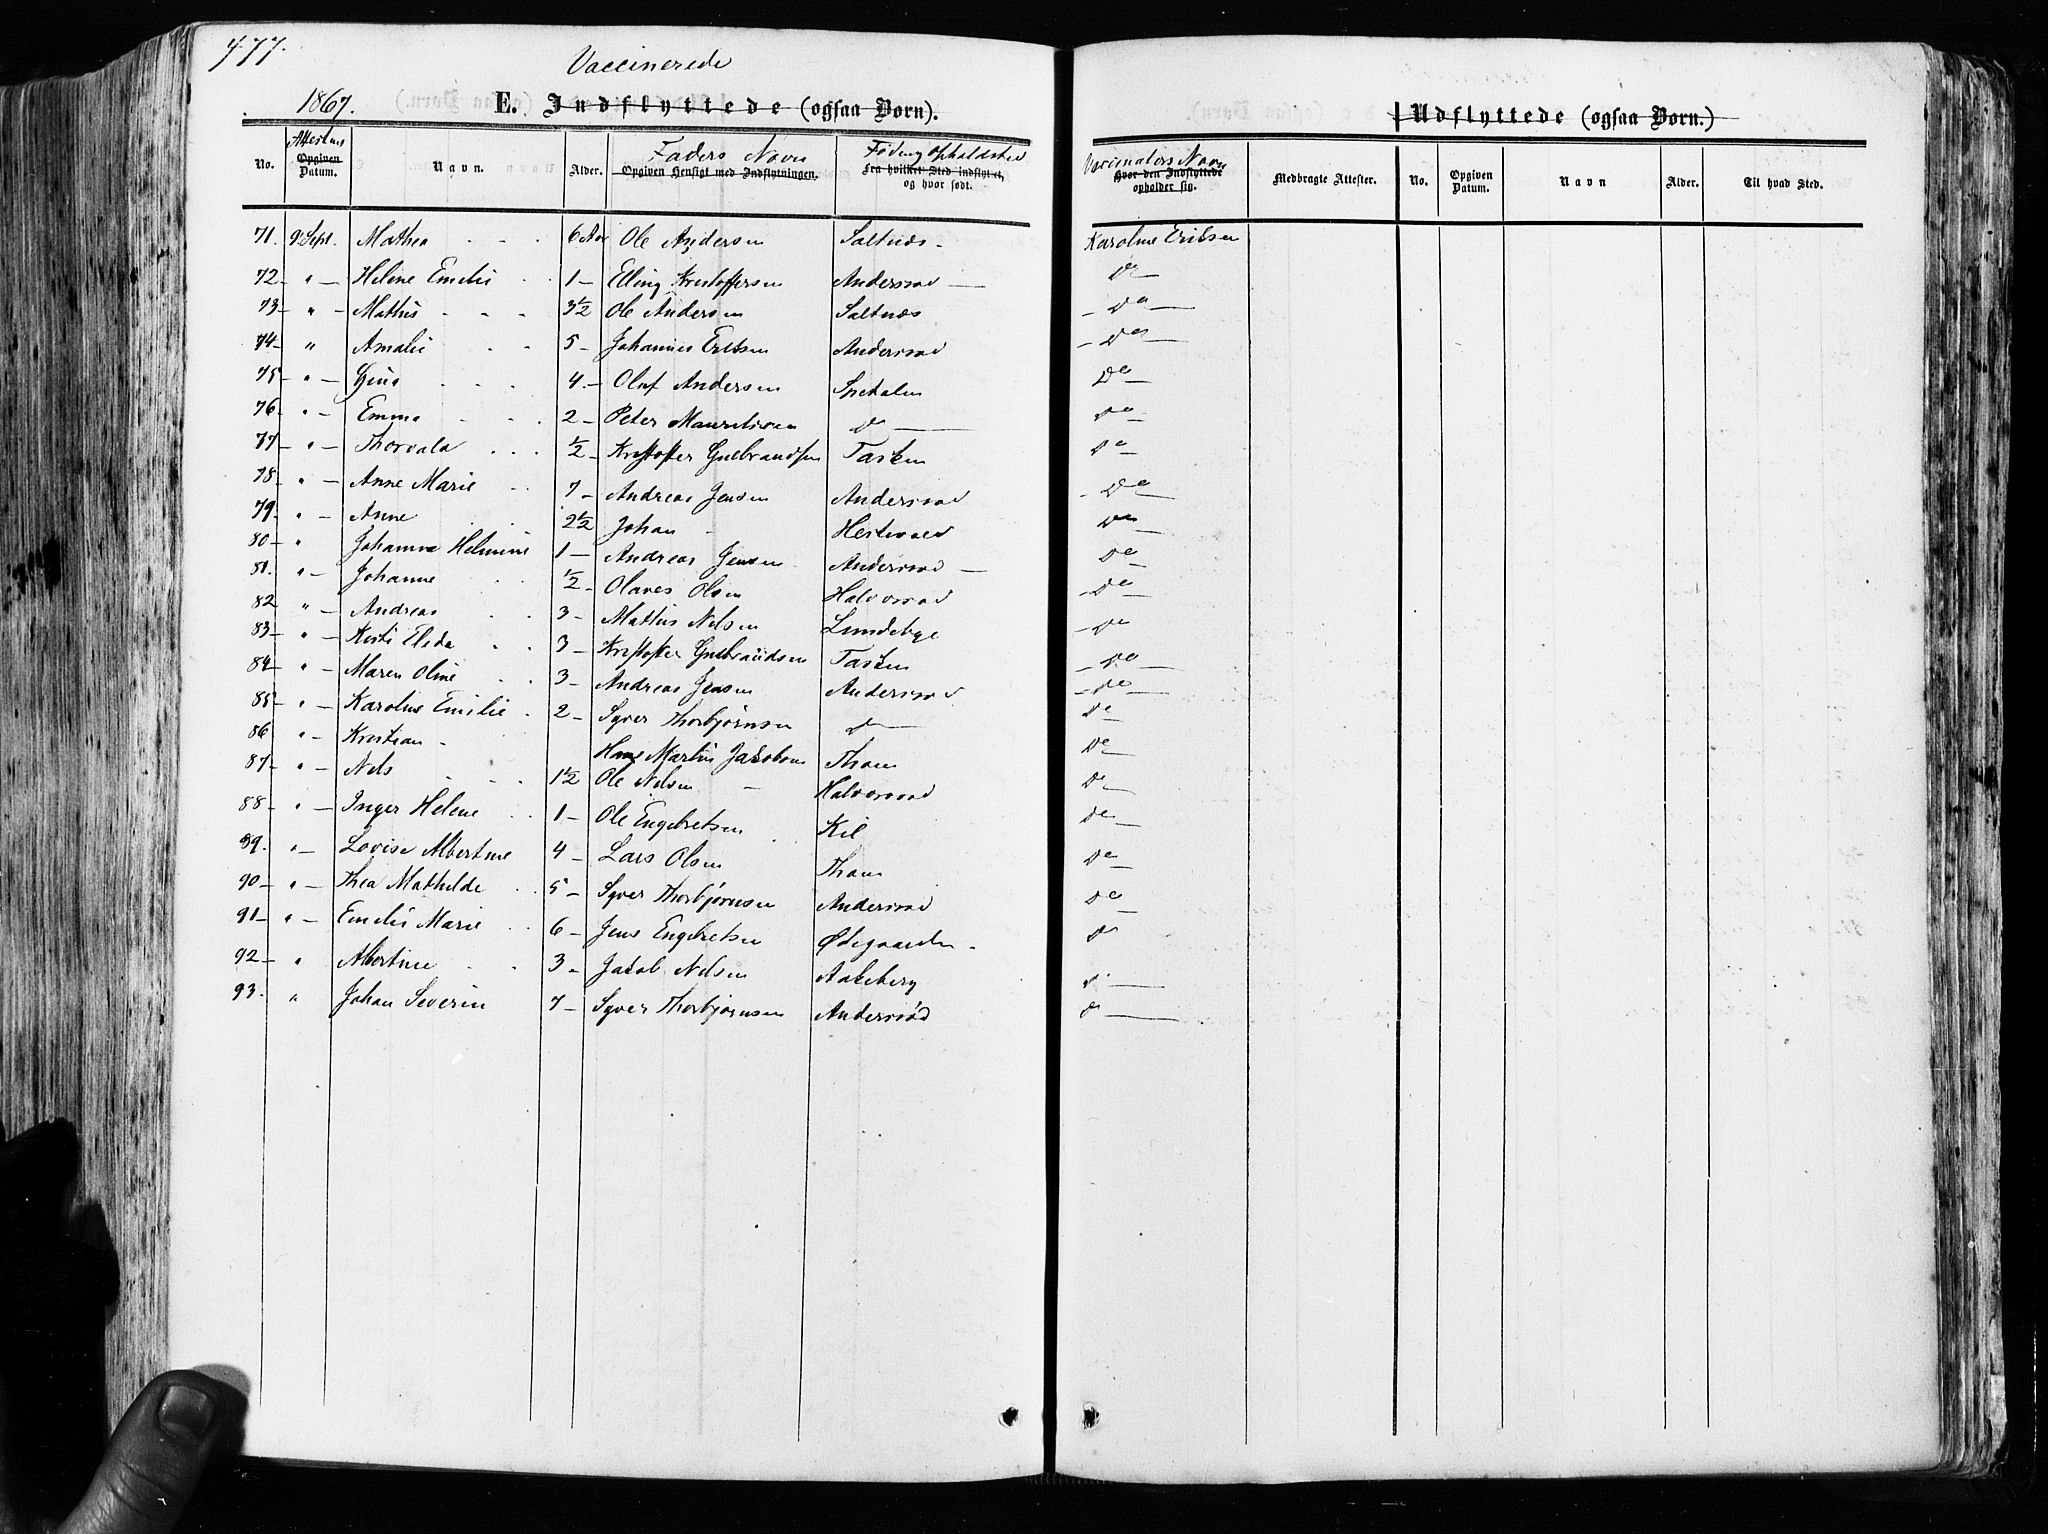 477.
Vaccinerede
1867.
E. Indflyttede (ogsaa Børn).
Udflyttede (ogsaa Børn.)
No. Attestens Opgiven Datum. Navn. Alder. Faders Navn Opgiven Hensigt med Indflytningen. Føde og Opholdsted Fra hvilket Sted indflyttet, og hvor født. Vaccinators Navn Hvor den Indflyttede opholder sig. Medbragte Attester. No. Opgiven Datum. Navn Alder. Til hvad Sted.
71. 9 Sept. Mathea - - - 6 Aar Ole Andersen Saltnæs - Karoline Eriksen
72 - " - Helene Emelie - - 1 - Elling Kristoffersen Andersrød — Do —
73 - " - Mathis - - - 3 1/2 Ole Andersen Saltnæs - Do —
74 - " Amalie - - 5 - Johannes Eriksen Andersrød - Do —
75 - " - Gina - - - 4 - Olaf Andersen Spetalen Do —
76 - " - Emma - - - 2 - Peter Mauritzen Do — Do —
77 - " - Thorvald - - - 1/2 - Kristoffer Gulbrandsen Tasken Do —
78 - " - Anne Marie - - 7 - Andreas Jensen Andersrød - Do —
79. " - Anne 2 1/2 Johan - Hestevold Do —
80 - " Johanna Helmine 1 - Andreas Jensen Andersrød — Do —
81. " - Johanne - - 1/2 - Olaves Olsen Halvorsrød - Do —
82 " - Andreas - - 3 - Mathis Nelsen Lundebye - Do —
83 - " Kirsti Elida - - 3 - Kristoffer Gulbrandsen Tasken - Do —
84 - " Maren Oline - - 3 - Andreas Jensen Andersrød - Do —
85 - " - Karoline Emilie - 2 - Syver Thorbjørnsen Do — Do —
86 " - Kristian - Hans Martin Jakobsen Thom Do —
87 - " - Nels - - - 1 1/2 Ole Nelsen - Halvorsrød Do —
88 - " - Inger Helene - - 1 - Ole Engebretsen Kil Do —
89. " - Lovise Albertine 4 - Lars Olsen Thom Do —
90 - " - Thea Mathilde - - 5 - Syver Thorbjørnsen Andersrød Do —
91 - " - Emelie Marie - - 6 - Jens Engebretsen Ødegaarden - Do
92 - " Albertine - - 3 - Jakob Nelsen Aakeberg Do —
93 - " Johan Severin 7 - Syver Thorbjørnsen Andersrød Do —